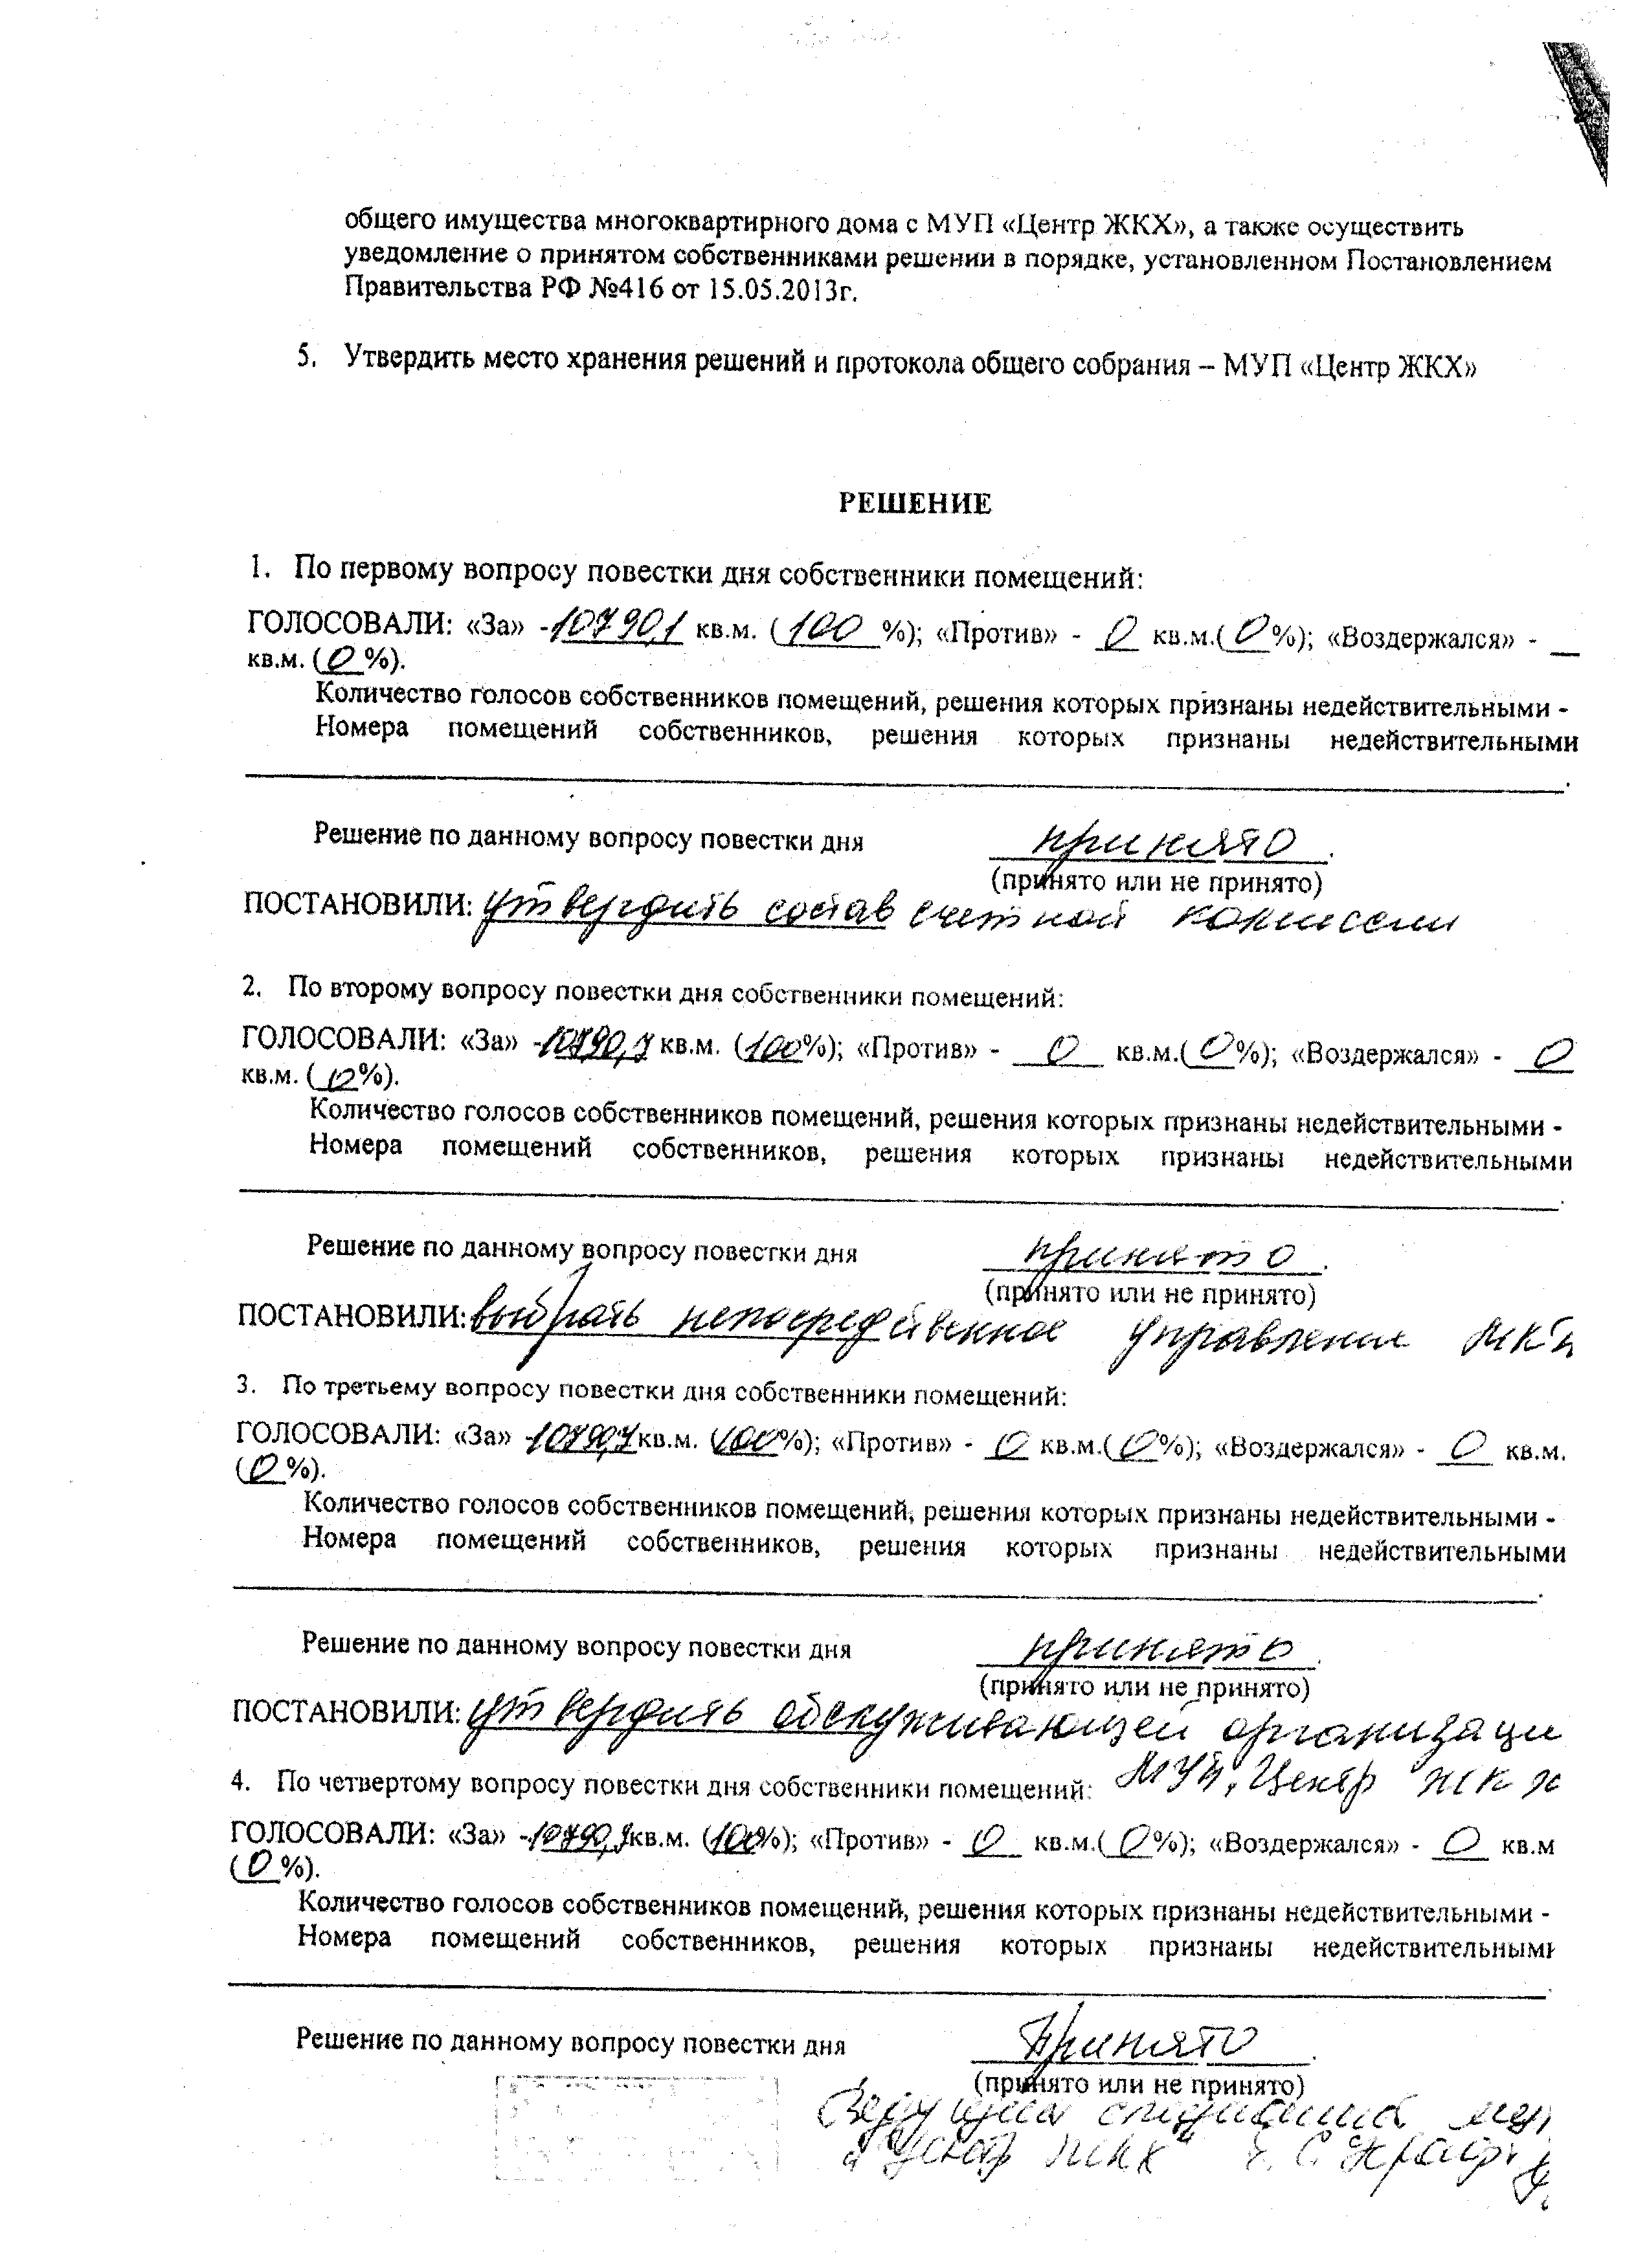 общего имущества многоквартирного дома с МУП «Центр ЖКХ», а также осуществить
уведомление о принятом собственниками решении в порядке, установленном Постановлением
Правительства РФ №416 от 15.05.2013г.
5. Утвердить место хранения решений и протокола общего собрания – МУП «Центр ЖКХ»
РЕШЕНИЕ
1. По первому вопросу повестки дня собственники помещений:
ГОЛОСОВАЛИ: «За» - 10790,1 кв.м. (100 %); «Против» - 0 кв.м.(0%); «Воздержался» - __
кв.м. (0%).
Количество голосов собственников помещений, решения которых признаны недействительными -
Номера помещений собственников, решения которых признаны недействительными
Решение по данному вопросу повестки дня принято.
(принято или не принято)
ПОСТАНОВИЛИ: утвердить состав счетной комиссии
2. По второму вопросу повестки дня собственники помещений:
ГОЛОСОВАЛИ: «За» - кв.м. (100%); «Против» - 0 кв.м.(0%); «Воздержался» - 0
кв.м. (0%).
Количество голосов собственников помещений, решения которых признаны недействительными -
Номера помещений собственников, решения которых признаны недействительными
Решение по данному вопросу повестки дня принято.
(принято или не принято)
ПОСТАНОВИЛИ: выбрать непосредственное управление МКД
3. По третьему вопросу повестки дня собственники помещений:
ГОЛОСОВАЛИ: «За» - кв.м. (100%); «Против» - 0 кв.м.(0%); «Воздержался» - 0 кв.м.
(0%).
Количество голосов собственников помещений, решения которых признаны недействительными -
Номера помещений собственников, решения которых признаны недействительными
Решение по данному вопросу повестки дня принято.
(принято или не принято)
ПОСТАНОВИЛИ: утвердить обслуживающей организаци
МУП "Центр ЖКХ
4. По четвертому вопросу повестки дня собственники помещений:
ГОЛОСОВАЛИ: «За» - кв.м. (100%); «Против» - 0 кв.м.(0%); «Воздержался» - 0 кв.м
(0%).
Количество голосов собственников помещений, решения которых признаны недействительными -
Номера помещений собственников, решения которых признаны недействительными
Решение по данному вопросу повестки дня принято.
(принято или не принято)
Ведущий специалист МУП
"Центр ЖКХ"